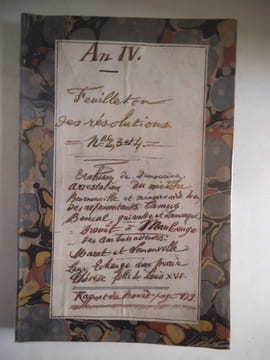 An IV.
Feuilleton
des résolutions
nos 2, 3 et 4
Trahison de Dumouriez,
arrestation du ministre
Beurnonville et
des représentants Camus
Bancal, quinette et Lamarque
Drouet à Maubeuge
des ambassadeurs
Maret et Semonville
Leur Echange avec Marie
Thérèse fille de Louis XVI.
Raport de Drouet page